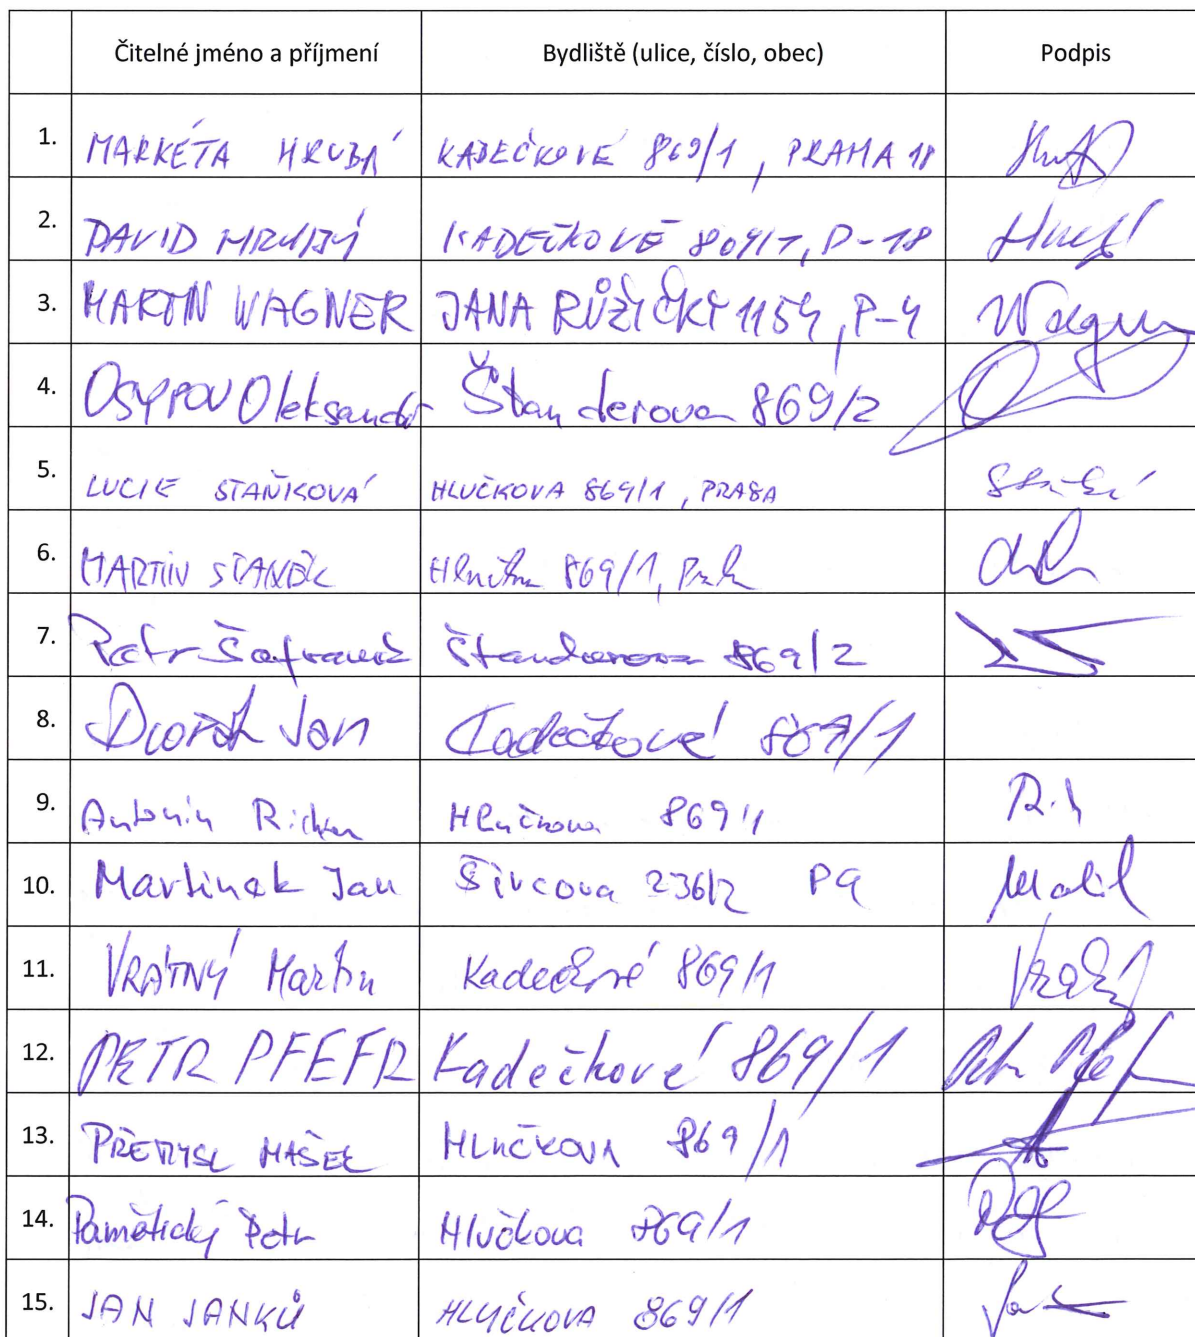 Čitelné jméno a příjmení Bydliště (ulice, číslo, obec) Podpis
1. MARKÉTA HRUBÁ KADEČKOVÉ 869/1, PRAHA 18
2. DAVID HRUBÝ KADEČKOVÉ 869/1, P-18
3. MARTIN WAGNER JANA RŮŽIČKY 1154, P-4 Wagner
4. OSYPOV Oleksandr Štanderova 869/2
5. LUCIE STAŇKOVÁ HLUČKOVA 869/1, PRAHA
6. MARTIN STANĚK Hlučkova 869/1,
7. Petr Šafranek Štanderova 869/2
8. Dvořák Jan Kadečkové 867/1
9. Antonín Richter Hlučkova 869/1
10. Martinek Jan Šivcova 236/2 P9
11. VRÁTNÝ Martin Kadečkové 869/1
12. PETR PFEFR Kadečkové 869/1
13. PŘEMYSL MAŠEK HLUČKOVA 869/1
14. Pamětický Petr Hlučkova 869/1
15. JAN JANKŮ HLUČKOVA 869/1